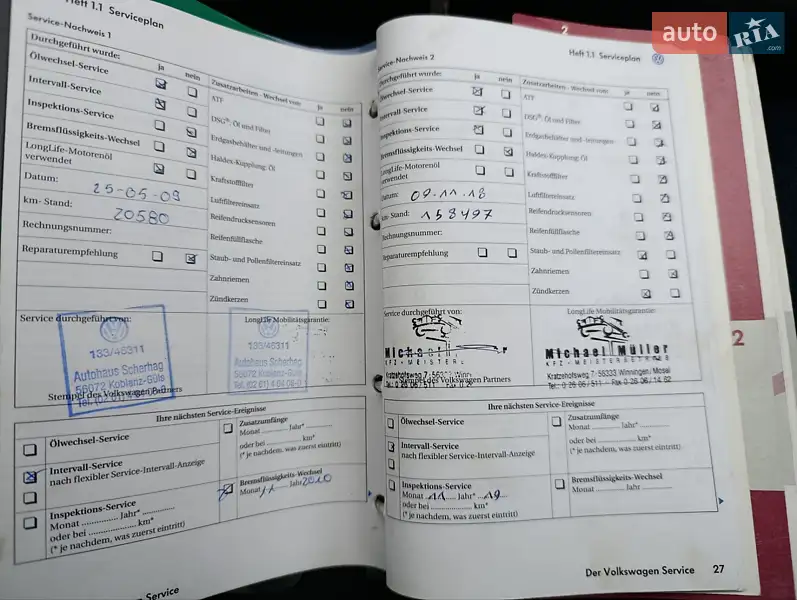 Heft 1.1 Serviceplan
Service-Nachweis 1
Durchgeführt wurde:
ja nein
Ölwechsel-Service
Intervall-Service
Inspektions-Service
Bremsflüssigkeits-Wechsel
LongLife-Motorenöl
verwendet
Datum: 25-05-09
km- Stand: 20580
Rechnungsnummer:
Reparaturempfehlung
Zusatzarbeiten - Wechsel von:
ja nein
ATF
DSG®: Öl und Filter
Erdgasbehälter und -leitungen
Haldex-Kupplung: Öl
Kraftstofffilter
Luftfiltereinsatz
Reifendrucksensoren
Reifenfüllflasche
Staub- und Pollenfiltereinsatz
Zahnriemen
Zündkerzen
Service durchgeführt von:
133/46311
Autohaus Scherhag
56072 Koblenz-Güls
Stempel des Volkswagen Partners
LongLife Mobilitätsgarantie:
133/46311
Autohaus Scherhag
56072 Koblenz-Güls
Ihre nächsten Service-Ereignisse
Ölwechsel-Service
Intervall-Service
nach flexibler Service-Intervall-Anzeige
Inspektions-Service
Monat .............. Jahr* ..............
oder bei .............. km*
(* je nachdem, was zuerst eintritt)
Zusatzumfänge
Monat ........ Jahr* ........
oder bei ........ km*
(* je nachdem, was zuerst eintritt)
Bremsflüssigkeits-Wechsel
Monat 11 Jahr 2010
Service
Heft 1.1 Serviceplan
Service-Nachweis 2
Durchgeführt wurde:
ja nein
Ölwechsel-Service
Intervall-Service
Inspektions-Service
Bremsflüssigkeits-Wechsel
LongLife-Motorenöl
verwendet
Datum: 09.11.18
km- Stand: 158497
Rechnungsnummer:
Reparaturempfehlung
Zusatzarbeiten - Wechsel von:
ja nein
ATF
DSG®: Öl und Filter
Erdgasbehälter und -leitungen
Haldex-Kupplung: Öl
Kraftstofffilter
Luftfiltereinsatz
Reifendrucksensoren
Reifenfüllflasche
Staub- und Pollenfiltereinsatz
Zahnriemen
Zündkerzen
Service durchgeführt von:
Michael
KFZ-MEISTER
Stempel des Volkswagen Partners
LongLife Mobilitätsgarantie:
Michael Müller
KFZ-MEISTERBETRIEB
Kratzehofsweg 7 · 56333 Winningen/Mosel
Ihre nächsten Service-Ereignisse
Ölwechsel-Service
Intervall-Service
nach flexibler Service-Intervall-Anzeige
Inspektions-Service
Monat 11 Jahr* 19
oder bei .............. km*
(* je nachdem, was zuerst eintritt)
Zusatzumfänge
Monat ........ Jahr* ........
oder bei ........ km*
(* je nachdem, was zuerst eintritt)
Bremsflüssigkeits-Wechsel
Monat ........ Jahr ........
Der Volkswagen Service 27
2
2
auto RIA .com